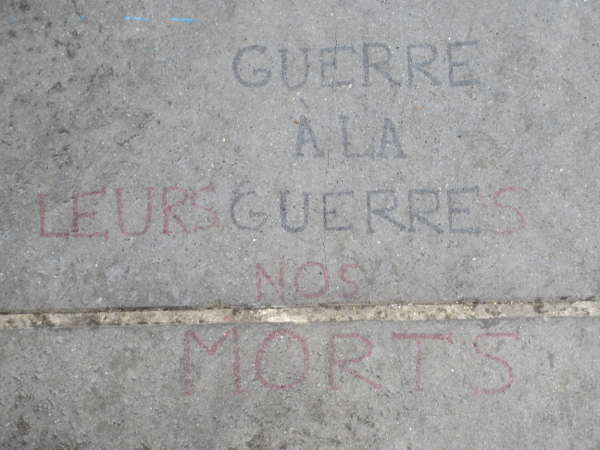 GUERRE
À LA
LEURS GUERRES
NOS
MORTS